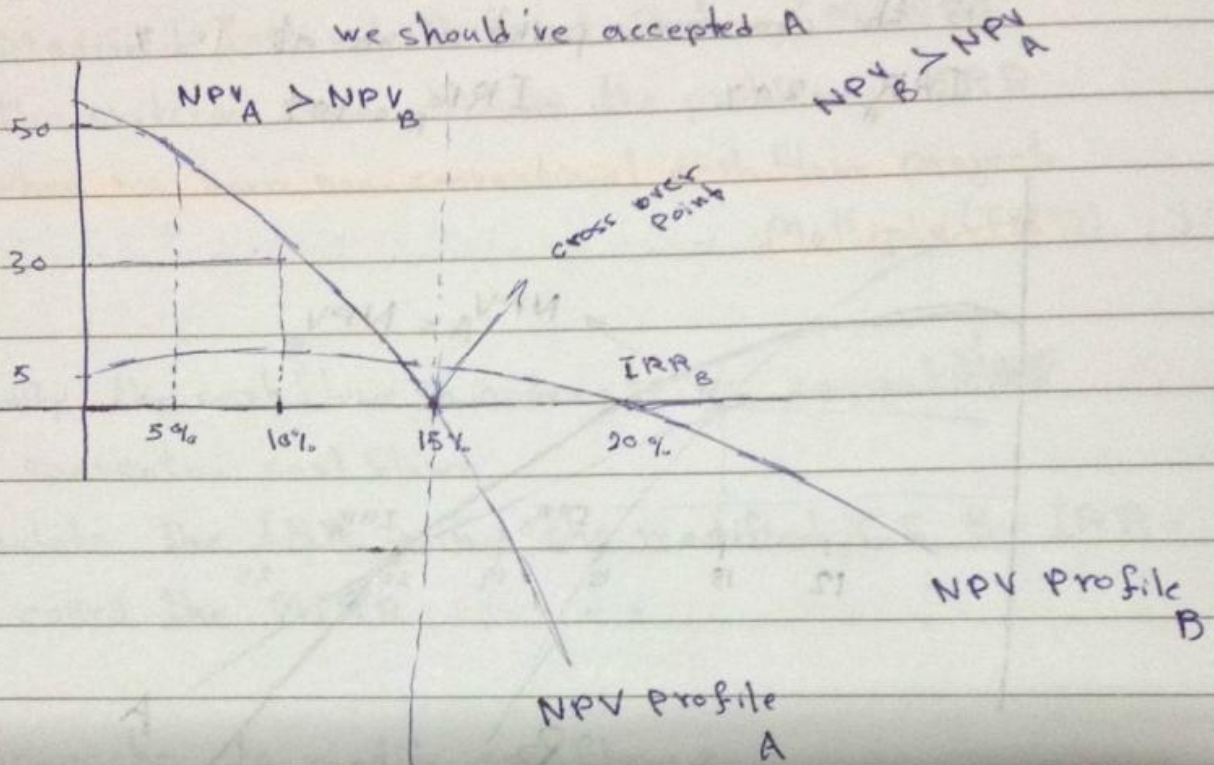 we should've accepted A
NPV_A > NPV_B
NPV_B > NPV_A
50
cross over
point
30
5
IRR_B
5%
10%
15%
20%
NPV Profile
B
NPV Profile
A